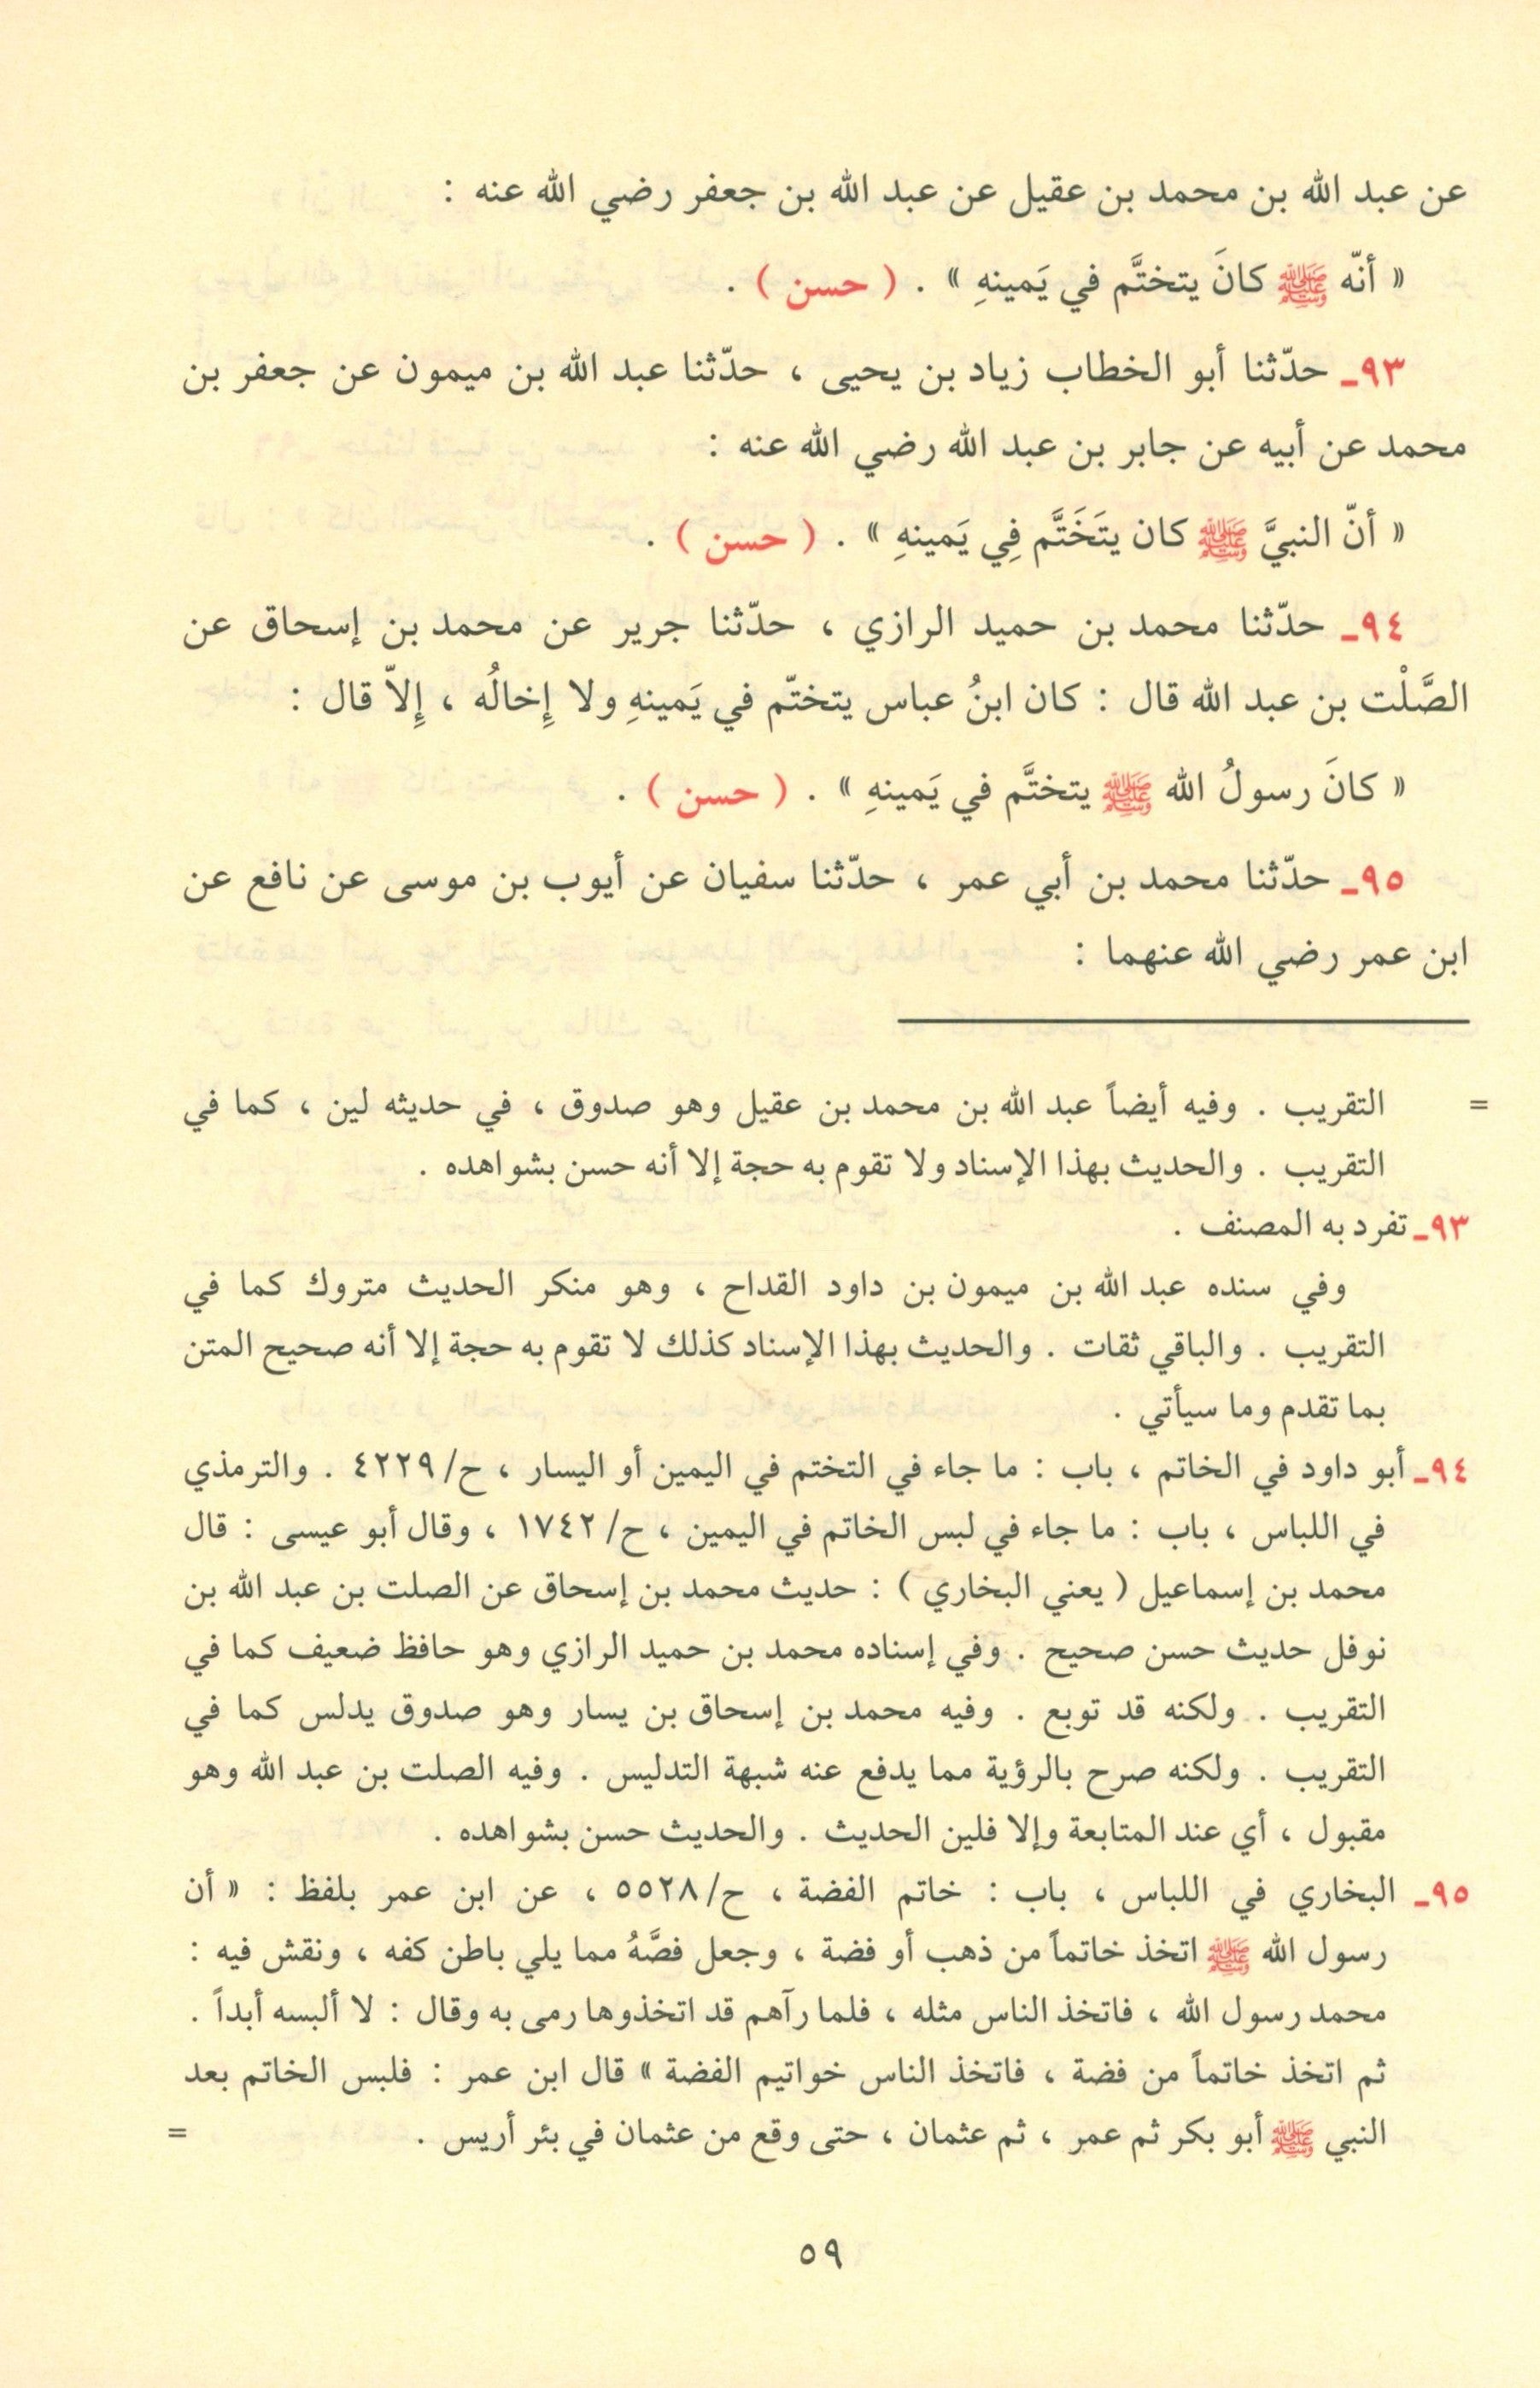 عن عبد الله بن محمد بن عقيل عن عبد الله بن جعفر رضي الله عنه :
« أنّه ﷺ كانَ يتختَّم في يَمينهِ » . ( حسن ) .
٩٣ـ حدّثنا أبو الخطاب زياد بن يحيى ، حدّثنا عبد الله بن ميمون عن جعفر بن
محمد عن أبيه عن جابر بن عبد الله رضي الله عنه :
« أنّ النبيَّ ﷺ كان يتَخَتَّم فِي يَمينهِ » . ( حسن ) .
٩٤ـ حدّثنا محمد بن حميد الرازي ، حدّثنا جرير عن محمد بن إسحاق عن
الصَّلْت بن عبد الله قال : كان ابنُ عباس يتختّم في يَمينهِ ولا إِخالُه ، إِلاّ قال :
« كانَ رسولُ الله ﷺ يتختَّم في يَمينهِ » . ( حسن ) .
٩٥ـ حدّثنا محمد بن أبي عمر ، حدّثنا سفيان عن أيوب بن موسى عن نافع عن
ابن عمر رضي الله عنهما :
= التقريب . وفيه أيضاً عبد الله بن محمد بن عقيل وهو صدوق ، في حديثه لين ، كما في
التقريب . والحديث بهذا الإسناد ولا تقوم به حجة إلا أنه حسن بشواهده .
٩٣ـ تفرد به المصنف .
وفي سنده عبد الله بن ميمون بن داود القداح ، وهو منكر الحديث متروك كما في
التقريب . والباقي ثقات . والحديث بهذا الإسناد كذلك لا تقوم به حجة إلا أنه صحيح المتن
بما تقدم وما سيأتي .
٩٤ـ أبو داود في الخاتم ، باب : ما جاء في التختم في اليمين أو اليسار ، ح/ ٤٢٢٩ . والترمذي
في اللباس ، باب : ما جاء في لبس الخاتم في اليمين ، ح/ ١٧٤٢ ، وقال أبو عيسى : قال
محمد بن إسماعيل ( يعني البخاري ) : حديث محمد بن إسحاق عن الصلت بن عبد الله بن
نوفل حديث حسن صحيح . وفي إسناده محمد بن حميد الرازي وهو حافظ ضعيف كما في
التقريب . ولكنه قد توبع . وفيه محمد بن إسحاق بن يسار وهو صدوق يدلس كما في
التقريب . ولكنه صرح بالرؤية مما يدفع عنه شبهة التدليس . وفيه الصلت بن عبد الله وهو
مقبول ، أي عند المتابعة وإلا فلين الحديث . والحديث حسن بشواهده .
٩٥ـ البخاري في اللباس ، باب : خاتم الفضة ، ح/ ٥٥٢٨ ، عن ابن عمر بلفظ : « أن
رسول الله ﷺ اتخذ خاتماً من ذهب أو فضة ، وجعل فصَّهُ مما يلي باطن كفه ، ونقش فيه :
محمد رسول الله ، فاتخذ الناس مثله ، فلما رآهم قد اتخذوها رمى به وقال : لا ألبسه أبداً .
ثم اتخذ خاتماً من فضة ، فاتخذ الناس خواتيم الفضة » قال ابن عمر : فلبس الخاتم بعد
النبي ﷺ أبو بكر ثم عمر ، ثم عثمان ، حتى وقع من عثمان في بئر أريس . =
٥٩